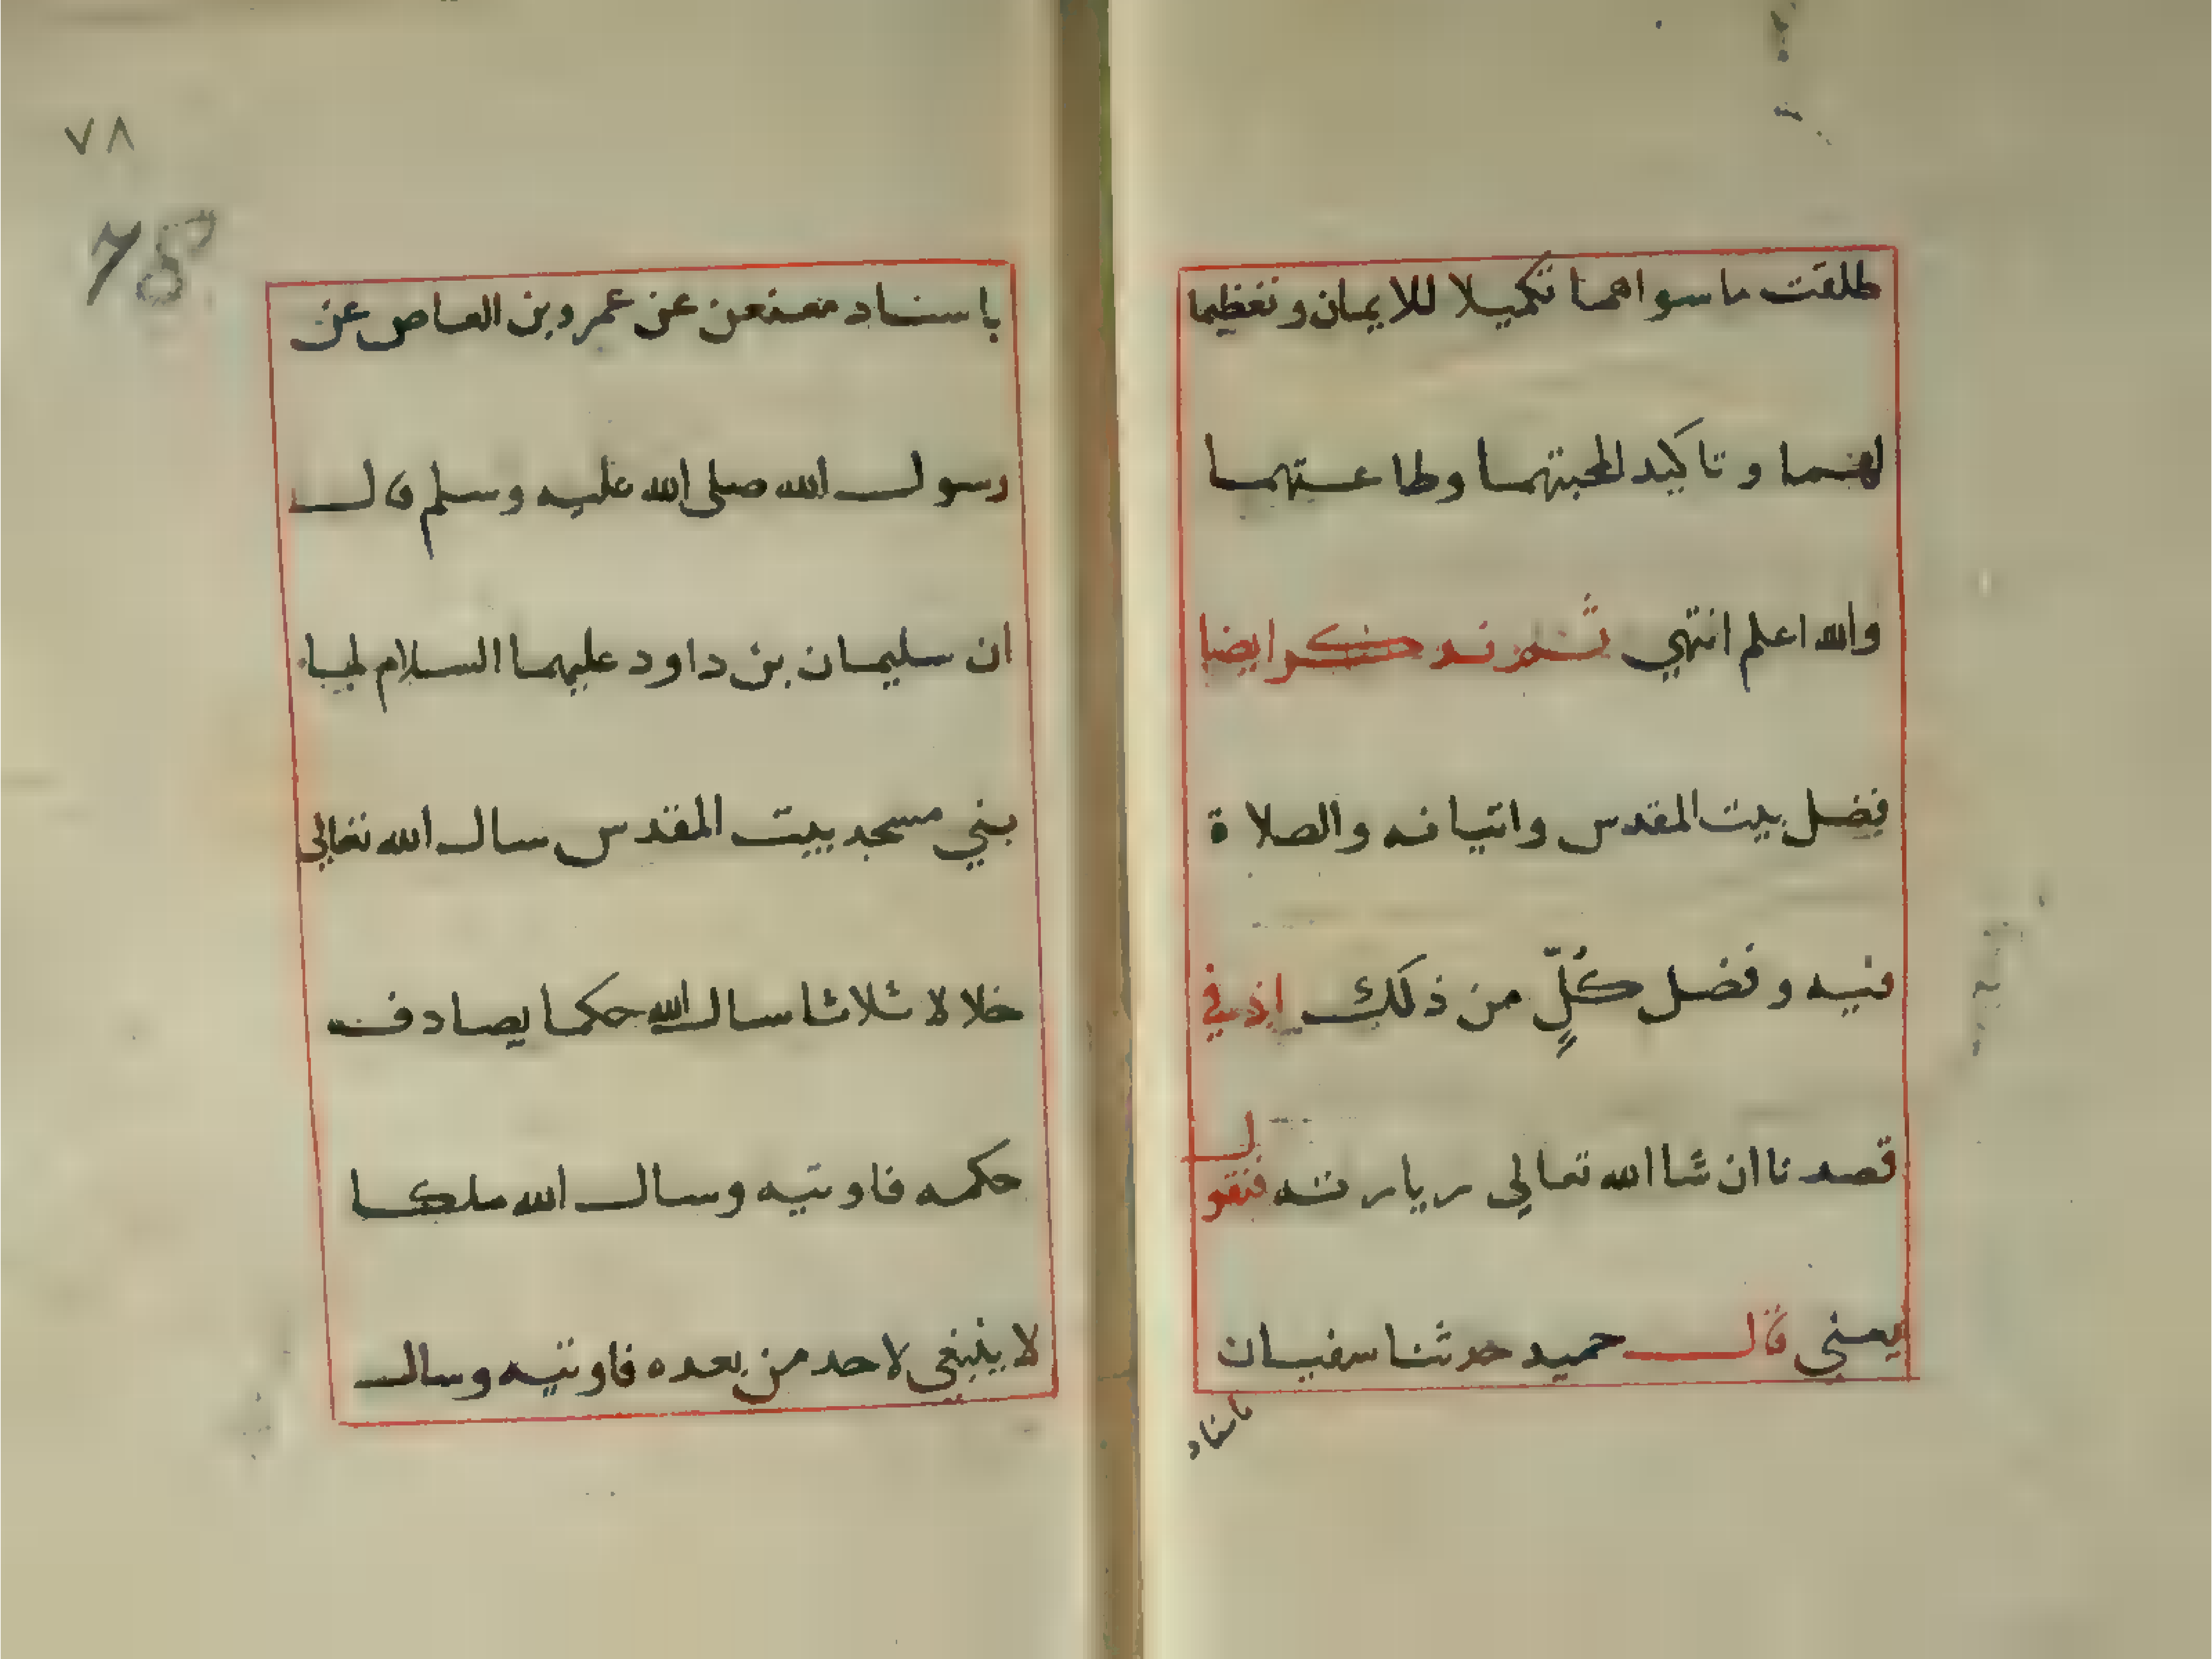 طلقت ما سواهما تكميلا للايمان وتعظيما
لهما وتاكيد لمحبتهما وطاعتهما
والله اعلم انتهي ثم نذكر ايضا
فضل بيت المقدس واتيانه والصلاة
فيه وفضل كُلٍّ من ذلك اذ في
قصدنا ان شا الله تعالي زيارته فنقول
يعني قال حميد حدثنا سفيان
باسناد
٧٨
78
باسناد معنعن عن عمرو بن العاص عن
رسول الله صلى الله عليه وسلم قال
ان سليمان بن داود عليهما السلام لما
بني مسجد بيت المقدس سال الله تعالي
خلالا ثلاثا سال الله حكما يصادف
حكمه فاوتيه وسال الله ملكا
لا ينبغي لاحد من بعده فاوتيه وسال